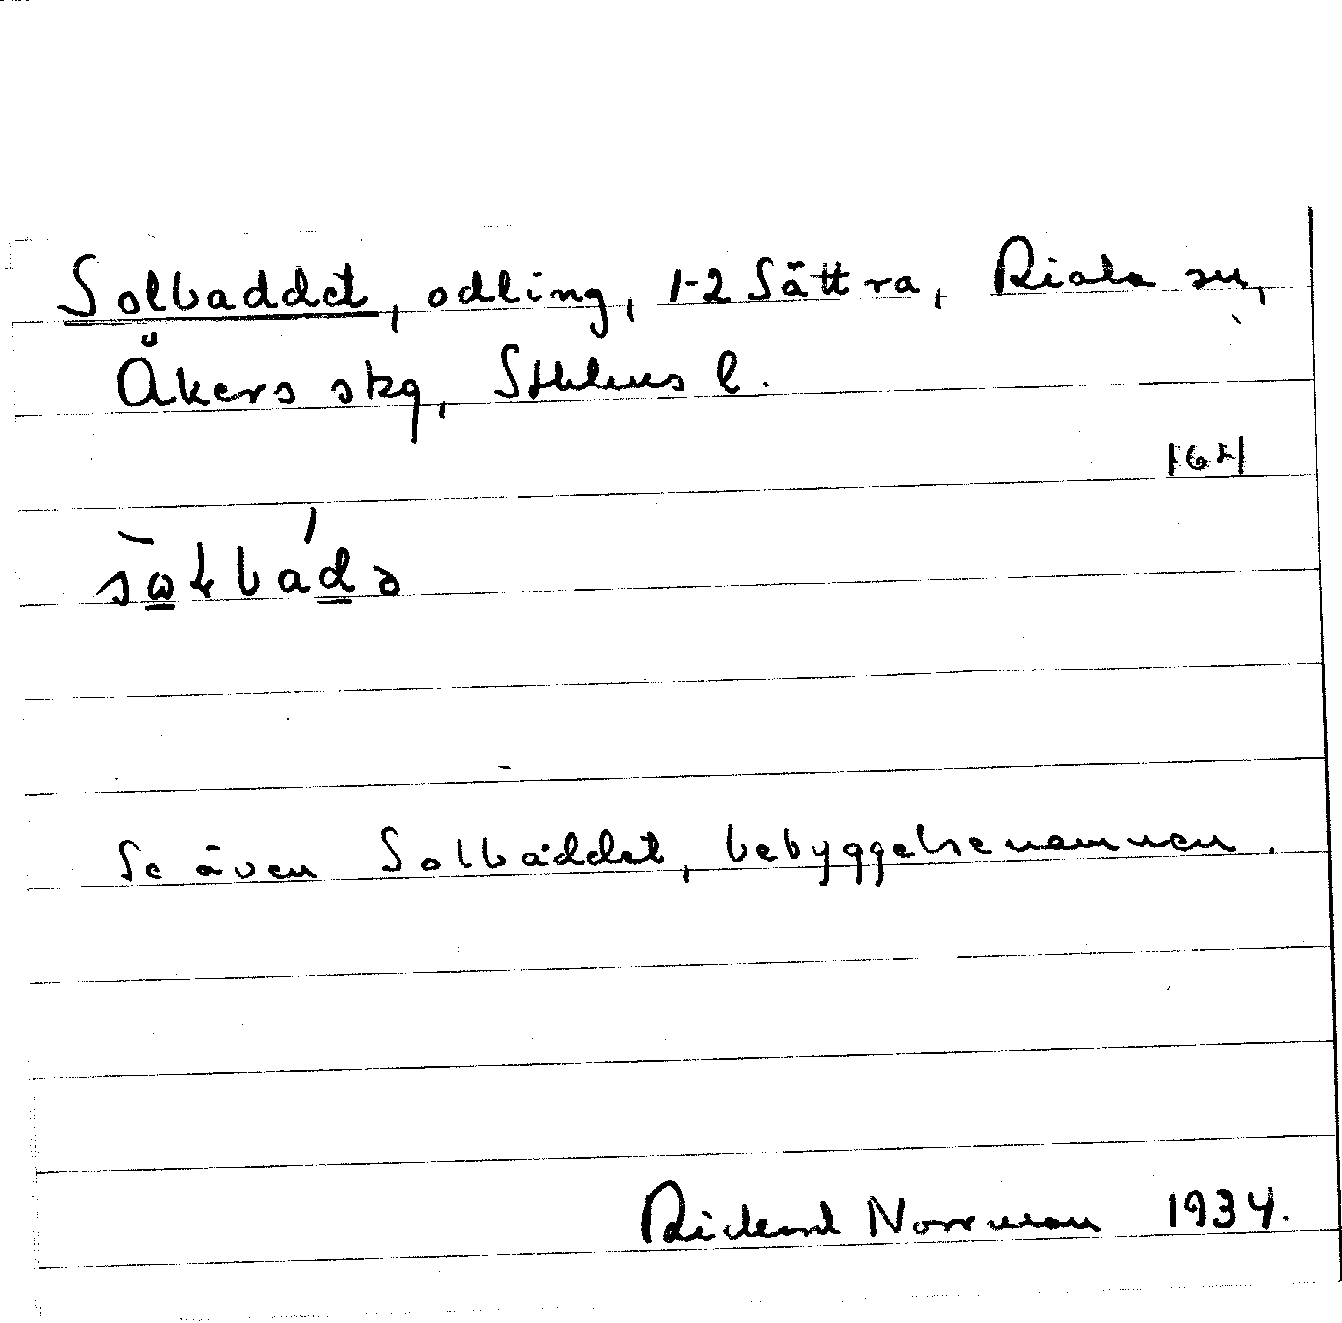 Solbaddet, odling, 1-2 Sättra, Riala sn,
Åkers skg, Sthlms l.
Se även Solbaddet, bebyggelsenamnen.
Rickard Norrman 1934.